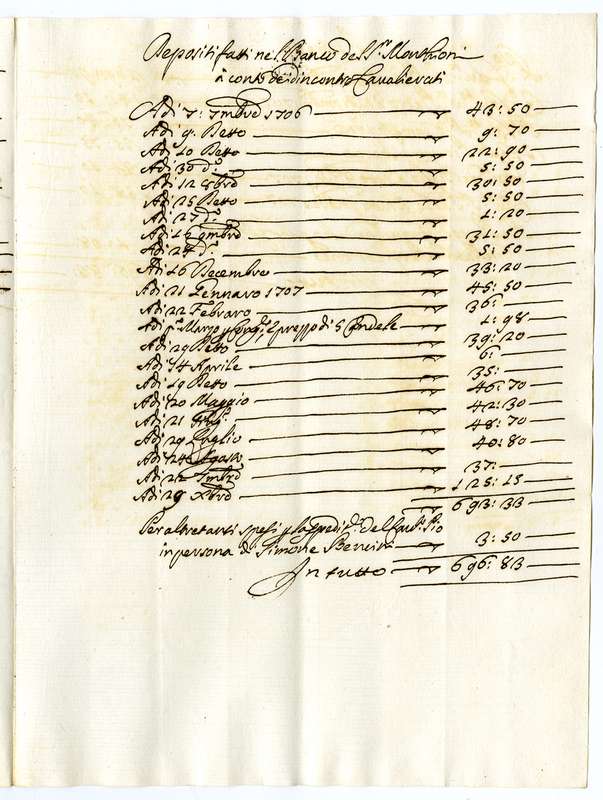 Depositi fatti nel Banco del S.r Monthioni
a conto de d'incontro Cavalierati
Adi 7: 7mbre 1706 43: 50
Adi 9. Detto 9: 70
Adi 10 Detto 22: 90
Adi 30 d.o 5: 50
Adi 12 8bre 30: 50
Adi 25 Detto 5: 50
Adi 27 d.o 1: 20
Adi 13 9mbre 31: 50
Adi 24 d.o 5: 50
Adi 16 Decembre 33: 20
Adi 21 Gennaro 1707 45: 50
Adi 22 Febraro 36:
Adi p.o Marzo prezzo di 5 Candele 1: 98
Adi 29 Detto 39: 20
Adi 14 Aprile 6:
Adi 19 Detto 35:
Adi 20 Maggio 46: 70
Adi 21 42: 30
Adi 29 Luglio 48: 70
Adi 24 Agosto 40: 80
Adi 22 7mbre 37:
Adi 29 Xbre 125: 15
693: 33
Per altretanti spesi p la
in persona di Simone 3: 50
In tutto 696: 83